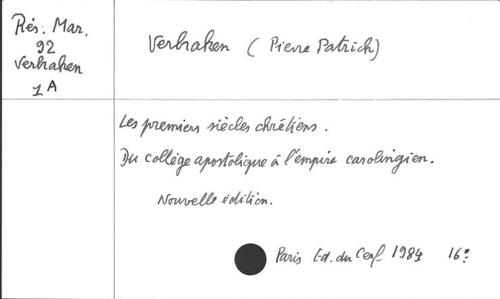 Rés. Mar.
92
Verhaken
1A
Verhaken (Pierre Patrich)
Les premiers siècles chrétiens.
Du collège apostolique à l'empire carolingien.
Nouvelle édition.
Paris Ed. du Cerf 1984 16°